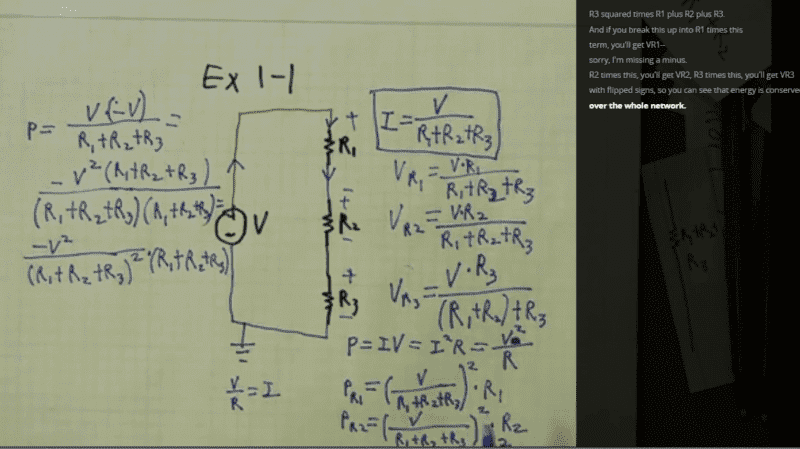 Ex 1-1
P = V(-V) / (R₁+R₂+R₃) =
-V²(R₁+R₂+R₃) / (R₁+R₂+R₃)(R₁+R₂+R₃) =
-V² / (R₁+R₂+R₃)² · (R₁+R₂+R₃)
V
+
R₁
-
+
R₂
-
+
R₃
-
V/R = I
I = V / (R₁+R₂+R₃)
V_R₁ = V·R₁ / (R₁+R₂+R₃)
V_R₂ = V·R₂ / (R₁+R₂+R₃)
V_R₃ = V·R₃ / ((R₁+R₂)+R₃)
P = IV = I²R = V²/R
P_R₁ = (V / (R₁+R₂+R₃))² · R₁
P_R₂ = (V / (R₁+R₂+R₃))² · R₂
R3 squared times R1 plus R2 plus R3.
And if you break this up into R1 times this
term, you'll get VR1--
sorry, I'm missing a minus.
R2 times this, you'll get VR2, R3 times this, you'll get VR3
with flipped signs, so you can see that energy is conserve
over the whole network.
R₁+R₂
R₃